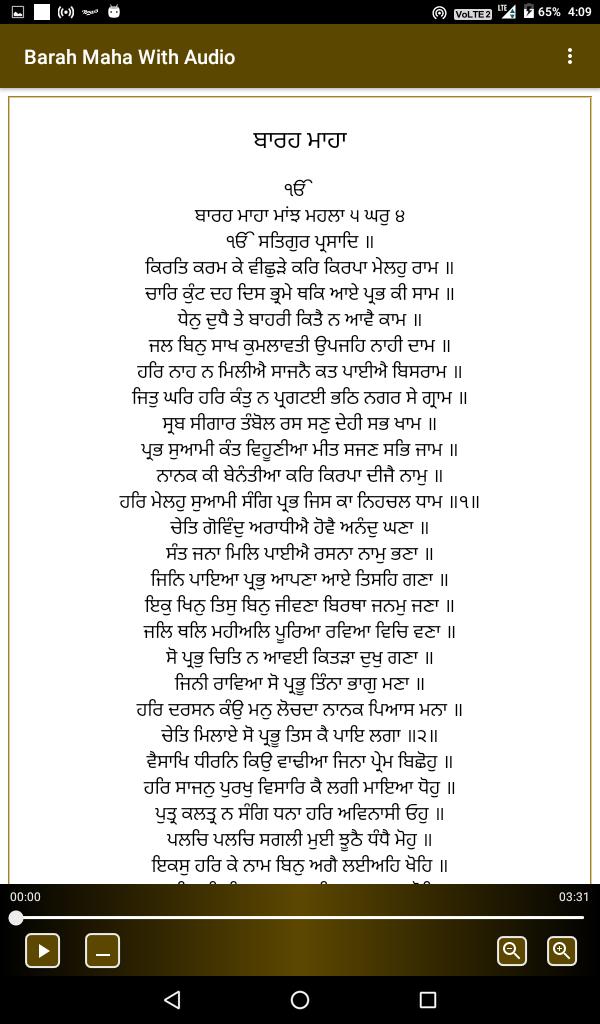 VoLTE2 LTE 65% 4:09
Barah Maha With Audio
ਬਾਰਹ ਮਾਹਾ
ੴ
ਬਾਰਹ ਮਾਹਾ ਮਾਂਝ ਮਹਲਾ ੫ ਘਰੁ ੪
ੴ ਸਤਿਗੁਰ ਪ੍ਰਸਾਦਿ ॥
ਕਿਰਤਿ ਕਰਮ ਕੇ ਵੀਛੁੜੇ ਕਰਿ ਕਿਰਪਾ ਮੇਲਹੁ ਰਾਮ ॥
ਚਾਰਿ ਕੁੰਟ ਦਹ ਦਿਸ ਭ੍ਰਮੇ ਥਕਿ ਆਏ ਪ੍ਰਭ ਕੀ ਸਾਮ ॥
ਧੇਨੁ ਦੁਧੈ ਤੇ ਬਾਹਰੀ ਕਿਤੈ ਨ ਆਵੈ ਕਾਮ ॥
ਜਲ ਬਿਨੁ ਸਾਖ ਕੁਮਲਾਵਤੀ ਉਪਜਹਿ ਨਾਹੀ ਦਾਮ ॥
ਹਰਿ ਨਾਹ ਨ ਮਿਲੀਐ ਸਾਜਨੈ ਕਤ ਪਾਈਐ ਬਿਸਰਾਮ ॥
ਜਿਤੁ ਘਰਿ ਹਰਿ ਕੰਤੁ ਨ ਪ੍ਰਗਟਈ ਭਠਿ ਨਗਰ ਸੇ ਗ੍ਰਾਮ ॥
ਸ੍ਰਬ ਸੀਗਾਰ ਤੰਬੋਲ ਰਸ ਸਣੁ ਦੇਹੀ ਸਭ ਖਾਮ ॥
ਪ੍ਰਭ ਸੁਆਮੀ ਕੰਤ ਵਿਹੂਣੀਆ ਮੀਤ ਸਜਣ ਸਭਿ ਜਾਮ ॥
ਨਾਨਕ ਕੀ ਬੇਨੰਤੀਆ ਕਰਿ ਕਿਰਪਾ ਦੀਜੈ ਨਾਮੁ ॥
ਹਰਿ ਮੇਲਹੁ ਸੁਆਮੀ ਸੰਗਿ ਪ੍ਰਭ ਜਿਸ ਕਾ ਨਿਹਚਲ ਧਾਮ ॥੧॥
ਚੇਤਿ ਗੋਵਿੰਦੁ ਅਰਾਧੀਐ ਹੋਵੈ ਅਨੰਦੁ ਘਣਾ ॥
ਸੰਤ ਜਨਾ ਮਿਲਿ ਪਾਈਐ ਰਸਨਾ ਨਾਮੁ ਭਣਾ ॥
ਜਿਨਿ ਪਾਇਆ ਪ੍ਰਭੁ ਆਪਣਾ ਆਏ ਤਿਸਹਿ ਗਣਾ ॥
ਇਕੁ ਖਿਨੁ ਤਿਸੁ ਬਿਨੁ ਜੀਵਣਾ ਬਿਰਥਾ ਜਨਮੁ ਜਣਾ ॥
ਜਲਿ ਥਲਿ ਮਹੀਅਲਿ ਪੂਰਿਆ ਰਵਿਆ ਵਿਚਿ ਵਣਾ ॥
ਸੋ ਪ੍ਰਭੁ ਚਿਤਿ ਨ ਆਵਈ ਕਿਤੜਾ ਦੁਖੁ ਗਣਾ ॥
ਜਿਨੀ ਰਾਵਿਆ ਸੋ ਪ੍ਰਭੂ ਤਿੰਨਾ ਭਾਗੁ ਮਣਾ ॥
ਹਰਿ ਦਰਸਨ ਕੰਉ ਮਨੁ ਲੋਚਦਾ ਨਾਨਕ ਪਿਆਸ ਮਨਾ ॥
ਚੇਤਿ ਮਿਲਾਏ ਸੋ ਪ੍ਰਭੂ ਤਿਸ ਕੈ ਪਾਇ ਲਗਾ ॥੨॥
ਵੈਸਾਖਿ ਧੀਰਨਿ ਕਿਉ ਵਾਢੀਆ ਜਿਨਾ ਪ੍ਰੇਮ ਬਿਛੋਹੁ ॥
ਹਰਿ ਸਾਜਨੁ ਪੁਰਖੁ ਵਿਸਾਰਿ ਕੈ ਲਗੀ ਮਾਇਆ ਧੋਹੁ ॥
ਪੁਤ੍ਰ ਕਲਤ੍ਰ ਨ ਸੰਗਿ ਧਨਾ ਹਰਿ ਅਵਿਨਾਸੀ ਓਹੁ ॥
ਪਲਚਿ ਪਲਚਿ ਸਗਲੀ ਮੁਈ ਝੂਠੈ ਧੰਧੈ ਮੋਹੁ ॥
ਇਕਸੁ ਹਰਿ ਕੇ ਨਾਮ ਬਿਨੁ ਅਗੈ ਲਈਅਹਿ ਖੋਹਿ ॥
00:00 03:31